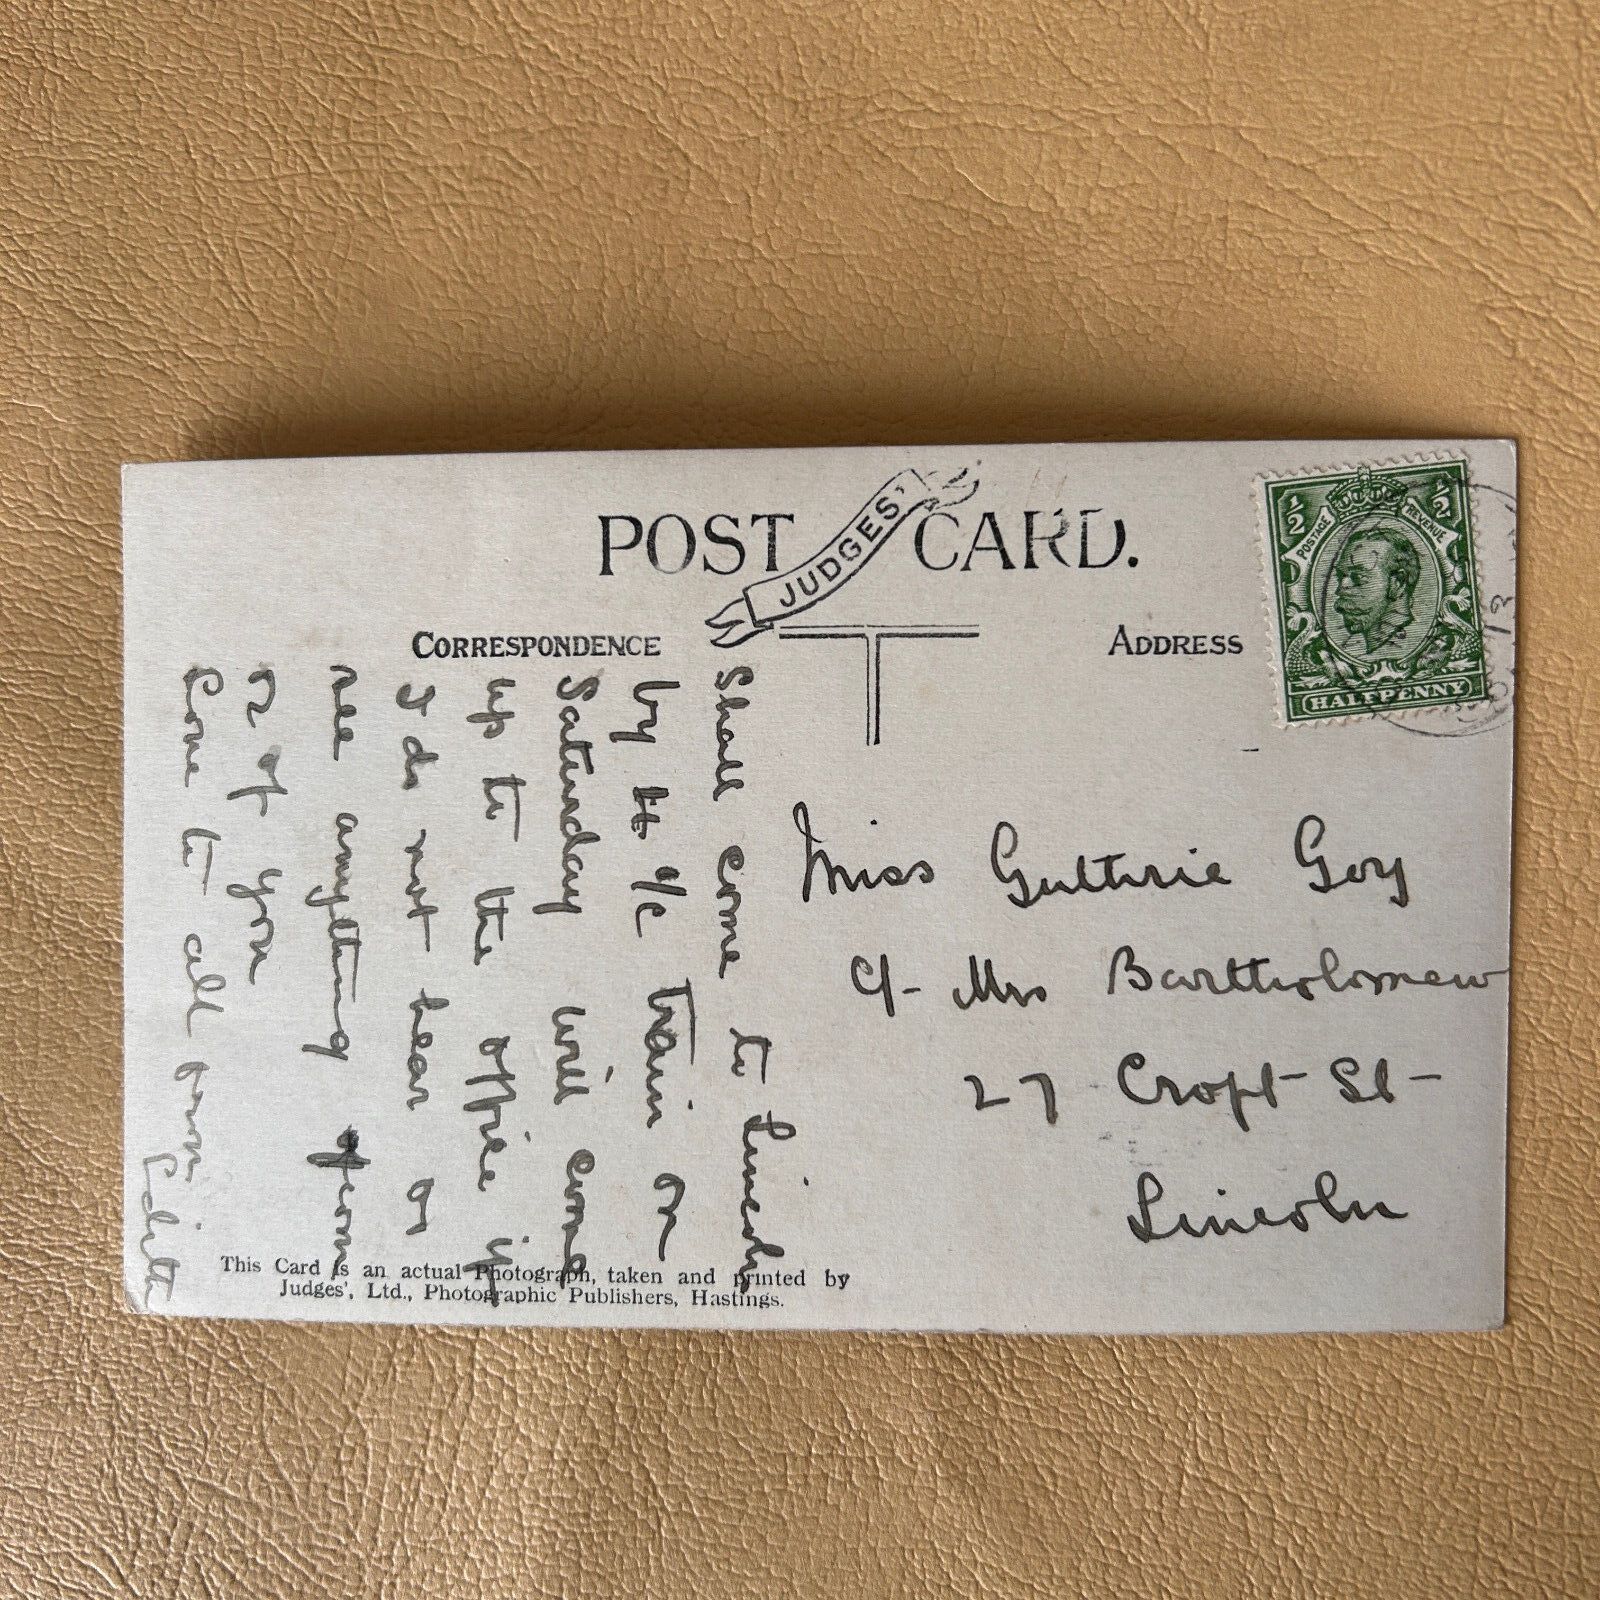 POST CARD.
JUDGES'
CORRESPONDENCE
ADDRESS
½ ½
POSTAGE REVENUE
HALFPENNY
13
Shall come to Lincoln
by train on
Saturday will come
up to the office if
I do not hear or
see anything from
R of you
Love to all from
Edith
Miss Guthrie Goy
c/- Mrs Bartholomew
27 Croft St-
Lincoln
This Card is an actual Photograph, taken and printed by
Judges', Ltd., Photographic Publishers, Hastings.